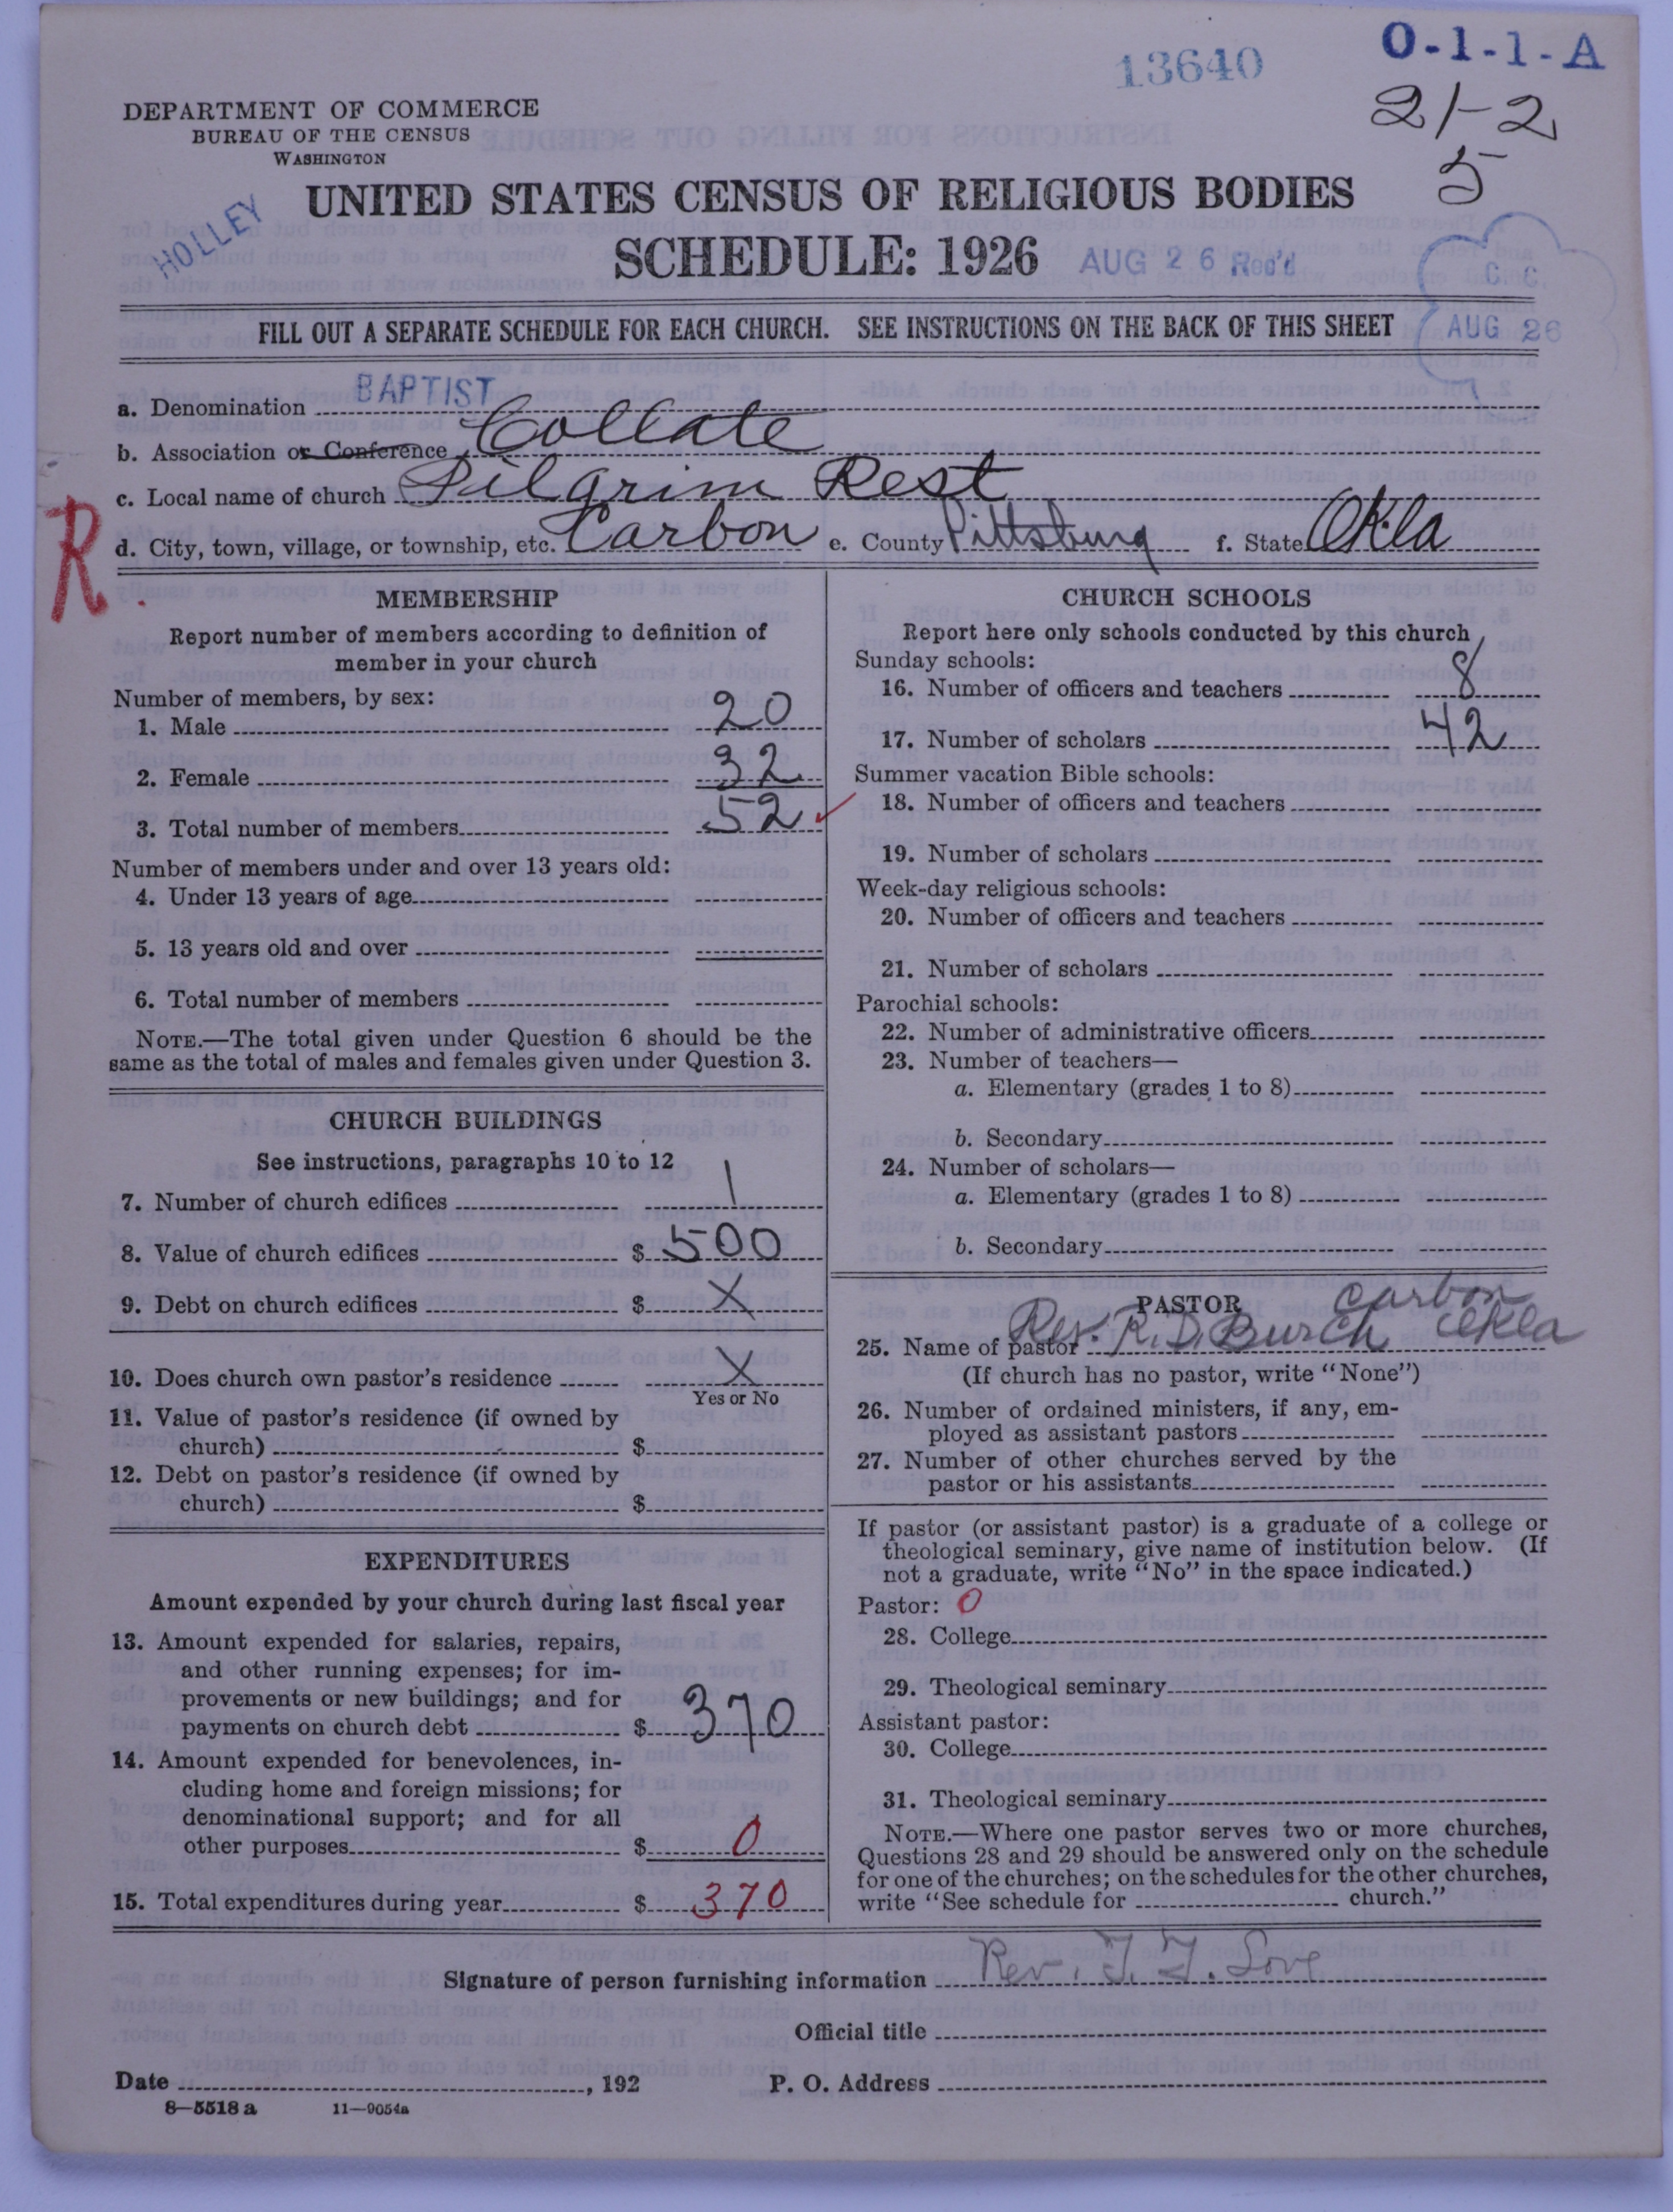 13640
O-1-1-A
21-2
5
DEPARTMENT OF COMMERCE
BUREAU OF THE CENSUS
WASHINGTON
HOLLEY
UNITED STATES CENSUS OF RELIGIOUS BODIES
SCHEDULE: 1926 AUG 26 Rec'd
C C
AUG 26
FILL OUT A SEPARATE SCHEDULE FOR EACH CHURCH. SEE INSTRUCTIONS ON THE BACK OF THIS SHEET
a. Denomination BAPTIST
b. Association or Conference Collate
c. Local name of church Pilgrim Rest
R.
d. City, town, village, or township, etc. Carbon e. County Pittsburg f. State Okla
MEMBERSHIP
Report number of members according to definition of
member in your church
Number of members, by sex:
1. Male 20
2. Female 32
3. Total number of members 52
Number of members under and over 13 years old:
4. Under 13 years of age
5. 13 years old and over
6. Total number of members
NOTE.—The total given under Question 6 should be the
same as the total of males and females given under Question 3.
CHURCH BUILDINGS
See instructions, paragraphs 10 to 12
7. Number of church edifices 1
8. Value of church edifices $ 500
9. Debt on church edifices $ X
10. Does church own pastor's residence X
Yes or No
11. Value of pastor's residence (if owned by
church) $
12. Debt on pastor's residence (if owned by
church) $
EXPENDITURES
Amount expended by your church during last fiscal year
13. Amount expended for salaries, repairs,
and other running expenses; for im-
provements or new buildings; and for
payments on church debt $ 370
14. Amount expended for benevolences, in-
cluding home and foreign missions; for
denominational support; and for all
other purposes $ 0
15. Total expenditures during year $ 370
CHURCH SCHOOLS
Report here only schools conducted by this church
Sunday schools:
16. Number of officers and teachers 8
17. Number of scholars 42
Summer vacation Bible schools:
18. Number of officers and teachers
19. Number of scholars
Week-day religious schools:
20. Number of officers and teachers
21. Number of scholars
Parochial schools:
22. Number of administrative officers
23. Number of teachers—
a. Elementary (grades 1 to 8)
b. Secondary
24. Number of scholars—
a. Elementary (grades 1 to 8)
b. Secondary
PASTOR Carbon
25. Name of pastor Rev. R. D. Burch Okla
(If church has no pastor, write "None")
26. Number of ordained ministers, if any, em-
ployed as assistant pastors
27. Number of other churches served by the
pastor or his assistants
If pastor (or assistant pastor) is a graduate of a college or
theological seminary, give name of institution below. (If
not a graduate, write "No" in the space indicated.)
Pastor: 0
28. College
29. Theological seminary
Assistant pastor:
30. College
31. Theological seminary
NOTE.—Where one pastor serves two or more churches,
Questions 28 and 29 should be answered only on the schedule
for one of the churches; on the schedules for the other churches,
write "See schedule for church."
Signature of person furnishing information Rev. J. J. Love
Official title
Date , 192 P. O. Address
8—5518 a 11—9054a